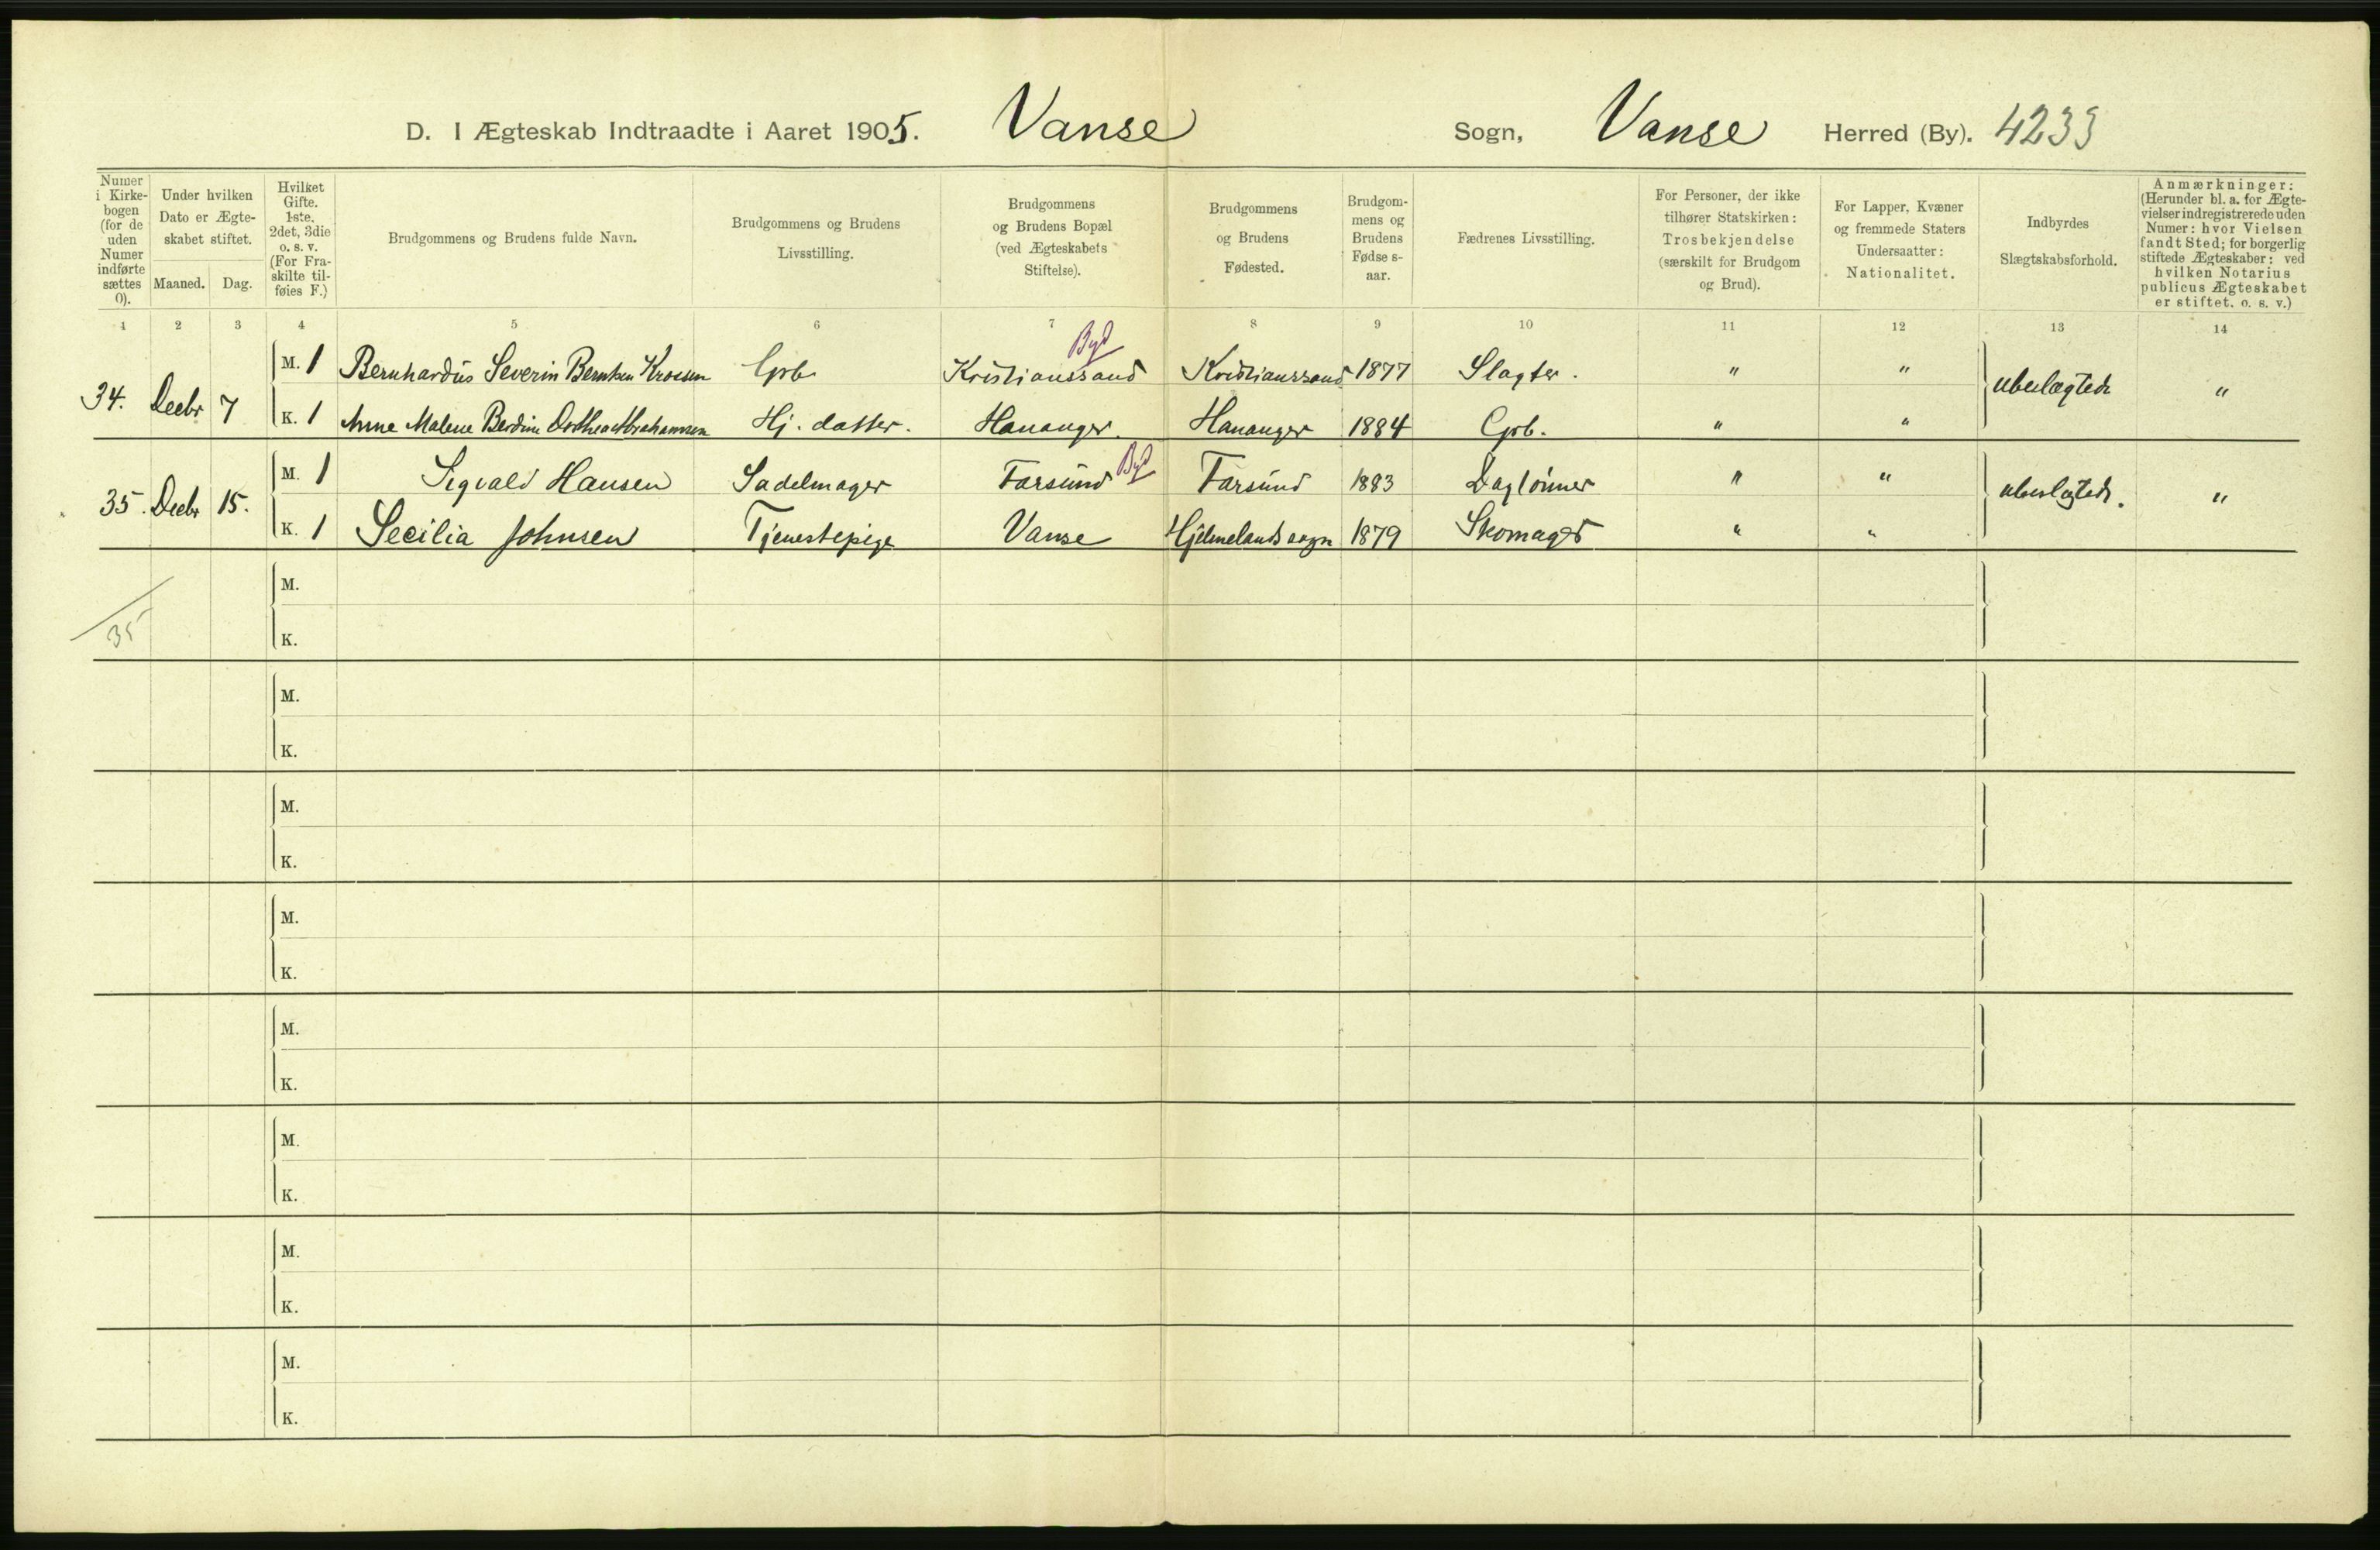 D. I Ægteskab Indtraadte i Aaret 1905. Vanse Sogn, Vanse Herred (By). 4233
Numer i Kirke-bogen (for de uden Numer indførte sættes 0).
Under hvilken Dato er Ægte-skabet stiftet.
Maaned. Dag.
Hvilket Gifte. 1ste, 2det, 3die o. s. v. (For Fra-skilte til-føies F.)
Brudgommens og Brudens fulde Navn.
Brudgommens og Brudens Livsstilling.
Brudgommens og Brudens Bopæl (ved Ægteskabets Stiftelse).
Brudgommens og Brudens Fødested.
Brudgom-mens og Brudens Fødse s-aar.
Fædrenes Livsstilling.
For Personer, der ikke tilhører Statskirken: Trosbekjendelse (særskilt for Brudgom og Brud).
For Lapper, Kvæner og fremmede Staters Undersaatter: Nationalitet.
Indbyrdes Slægtskabsforhold.
Anmærkninger: (Herunder bl. a. for Ægte-vielser indregistrerede uden Numer: hvor Vielsen fandt Sted; for borgerlig stiftede Ægteskaber: ved hvilken Notarius publicus Ægteskabet er stiftet. o. s. v.)
1 2 3 4 5 6 7 8 9 10 11 12 13 14
Byd
34. Decbr 7 M. 1 Bernhardus Severin Kristianssand Kristianssand 1877 Slagter. " " ubeslægtede "
K. 1 Anne Malene Berdine Dorthea Abrahamsen Hj. datter. Hananger. Hananger 1884 Grb. " "
35. Decbr 15. M. 1 Sigvald Hansen Sadelmager Farsund Byd Farsund 1883 Daglønner " " ubeslægtede. "
K. 1 Secilia Johnsen Tjenestepige Vanse Hjelmelands sogn 1879 Skomager " "
M.
35
K.
M.
K.
M.
K.
M.
K.
M.
K.
M.
K.
M.
K.
M.
K.